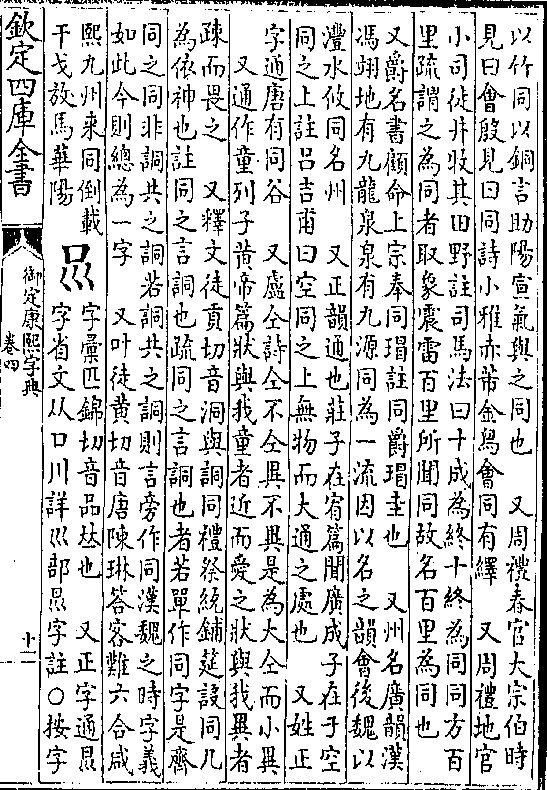 以竹同以銅言助陽宣氣與之同也　又周禮春官大宗伯時
見曰會殷見曰同詩小雅赤芾金舄會同有繹　又周禮地官
小司徒井牧其田野註司馬法曰十成為終十終為同同方百
里疏謂之為同者取象震雷百里所聞同故名百里為同也
又爵名書顧命上宗奉同瑁註同爵瑁圭也　又州名廣韻漢
馮翊地有九龍泉泉有九源同為一流因以名之韻會後魏以
灃水攸同名州　又正韻通也莊子在宥篇聞廣成子在于空
同之上註呂吉甫曰空同之上無物而大通之處也　又姓正
字通唐有同谷　又盧仝詩仝不仝異不異是為大仝而小異
又通作童列子黃帝篇狀與我童者近而愛之狀與我異者
疎而畏之　又釋文徒貢切音洞與詷同禮祭統鋪筵設同几
為依神也註同之言詷也疏同之言詷也者若單作同字是齊
同之同非詷共之詷若詷共之詷則言旁作同漢魏之時字義
如此今則總為一字　又叶徒黃切音唐陳琳荅客難六合咸
熙九州來同倒載
干戈放馬華陽
𠱠
字彙匹錦切音品㚲也　又正字通㗊
字省文从口川詳巛部㗊字註○按字
欽定四庫全書
御定康熙字典
卷四
十一